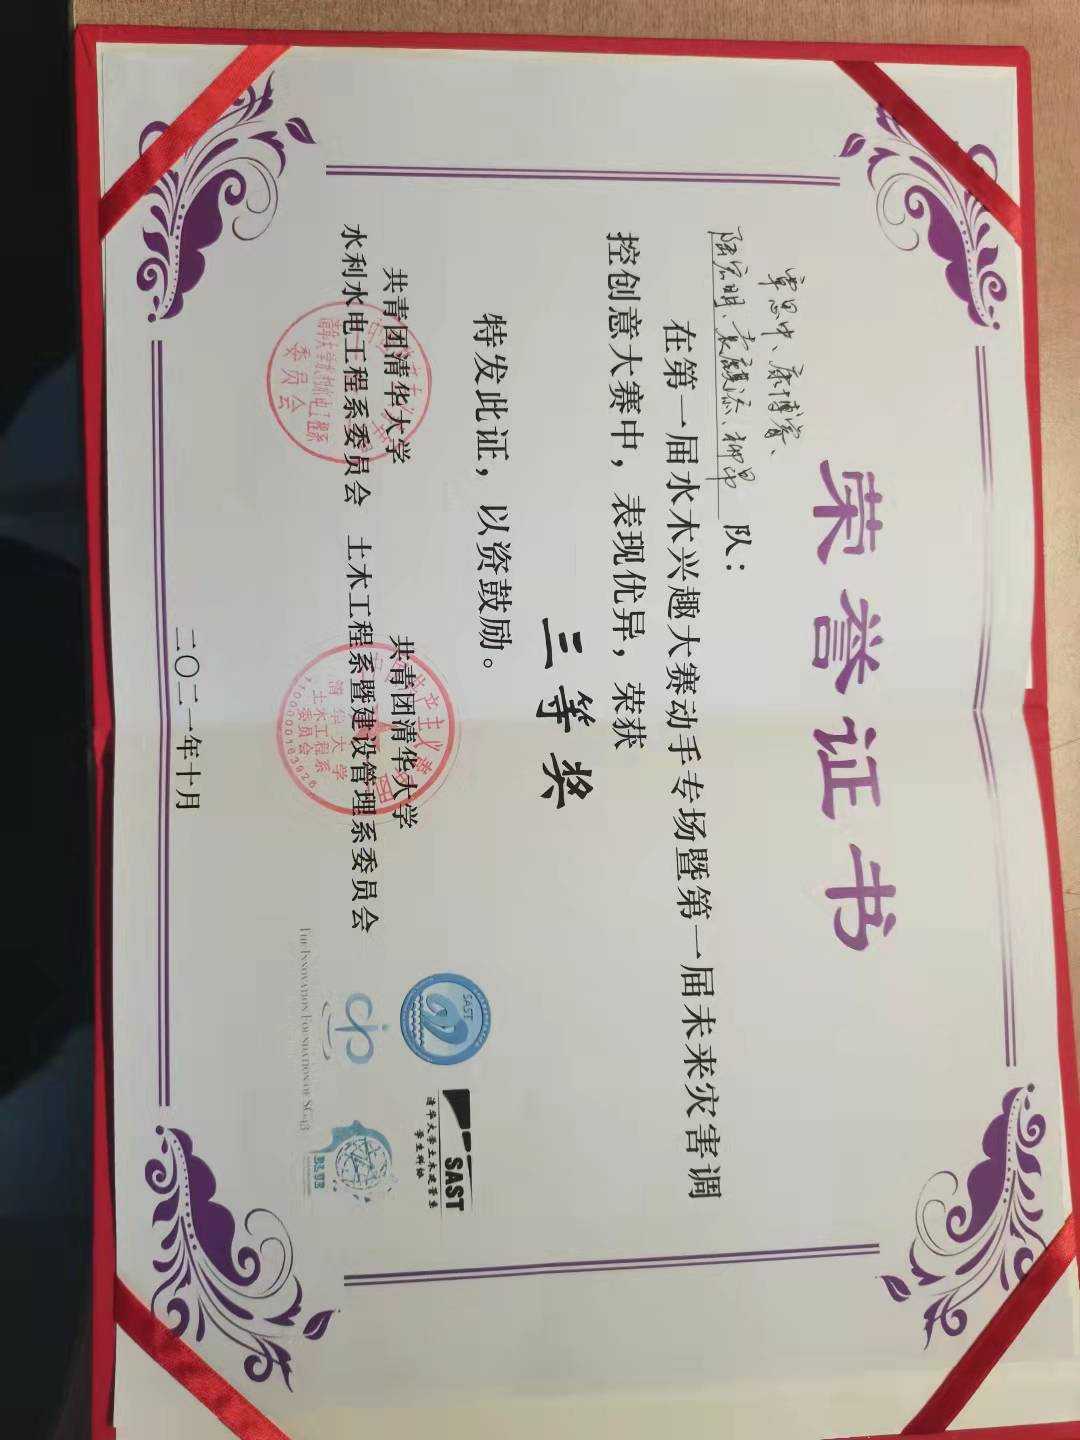 荣誉证书
覃思中、康博睿、
陆宏明、袁麒添、柳昂 队：
在第一届水木兴趣大赛动手专场暨第一届未来灾害调
控创意大赛中，表现优异，荣获
三等奖
特发此证，以资鼓励。
共青团清华大学
水利水电工程系委员会
共青团清华大学
土木工程系暨建设管理系委员会
清华大学水利水电工程系
委员会
中国共产主义青年团
清华大学
土木工程系
委员会
1100000163928
SAST
SAST
清华大学土木建管系
学生科协
THE INNOVATION FOUNDATION OF SG43
BLUE
二〇二一年十月